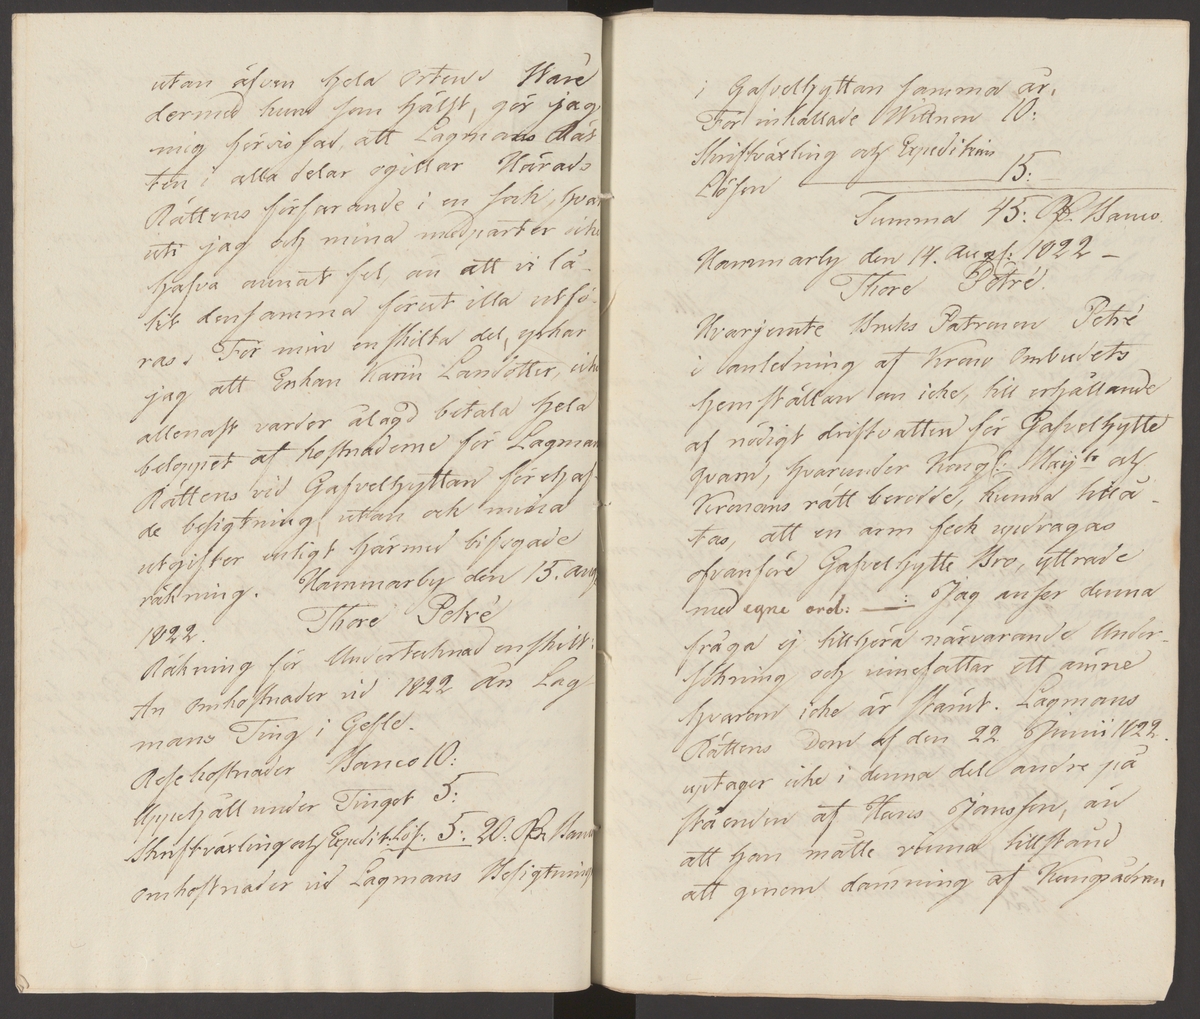 utan äfven hela Ortens Ware
dermed hum som hälst, gör jag
mig förvissad, att Lagmans Rät
ten i alla delar ogillar Härads
Rättens förfarande i en sock, hvar
uti jag och mina medparter icke
hafva annat fel, än att vi lå-
tit densamma förut illa utfö-
ras. För min enskilta del, yrkar
jag att Enkan Karin Landötter, icke
allenast varder ålagd betala hela
beloppet af kostnaderne för Lagmans
Rättens vid Gafvelhyttan förehaf-
de besigtning, utan och mina
utgifter enligt härmed bifogade
räkning. Hammarby den 15. aug
1822. Thore Petré
Räkning för Undertecknad enskilt:
An omkostnader vid 1822 års Lag
mans Ting i Gefle.
Resekostnader Banco 10:
Uppehåll under Tinget 5:
Skriftväxling och Expedit: Lös: 5: 20. Rd Banco
omkostnader vid Lagmans Besigtning
i Gafvelhyttan samma år.
För inkallade Wittnen 10:
Skriftväxling och Expeditions
Lösen 15:
Summa 45: Rd Banco.
Hammarby den 14. Aug: 1822 –
Thore Petré.
Hvarjemte Bruks Patronen Petré
i anledning af Krono Ombudets
hemställan om icke, till erhållande
af nödigt driftvatten för Gafvelhytte
qvarn, hvarunder Kongl: Maij:ts och
Kronans rätt berodde, kunna tillå-
tas, att en arm feck updragas
ofvanföre Gafvelhytte Bro, yttrade
med egne ord: —: Jag anser denna
fråga ej tillhöra närvarande Under-
sökning och innefattar ett ämne
hvarom icke är stämt. Lagmans
Rättens Dom af den 22 Junii 1822.
uptager icke i denna del andre på
ståenden af Hans Jansson, än
att han måtte vinna tillstånd
att genom damning af Kungsådran